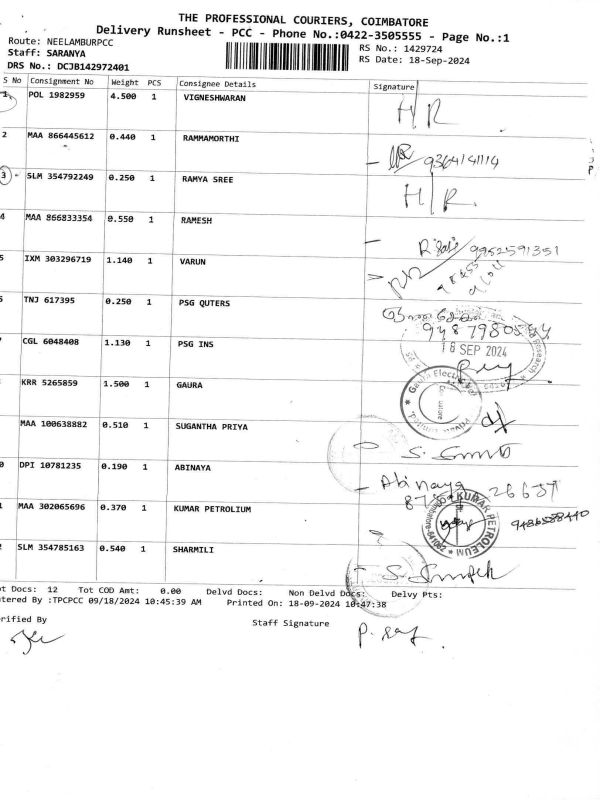 THE PROFESSIONAL COURIERS, COIMBATORE
Delivery Runsheet - PCC - Phone No.:0422-3505555 - Page No.:1
Route: NEELAMBURPCC
RS No.: 1429724
Staff: SARANYA
RS Date: 18-Sep-2024
DRS No.: DCJB142972401
S No Consignment No Weight PCS Consignee Details Signature
1 POL 1982959 4.500 1 VIGNESHWARAN H/R
2 MAA 866445612 0.440 1 RAMMAMORTHI 9364141114
3 SLM 354792249 0.250 1 RAMYA SREE H/R.
4 MAA 866833354 0.550 1 RAMESH 9952591351
5 IXM 303296719 1.140 1 VARUN
TNJ 617395 0.250 1 PSG QUTERS
CGL 6048408 1.130 1 PSG INS 18 SEP 2024
KRR 5265859 1.500 1 GAURA
MAA 100638882 0.510 1 SUGANTHA PRIYA
0 DPI 10781235 0.190 1 ABINAYA Abinaya
1 MAA 302065696 0.370 1 KUMAR PETROLIUM KUMAR PETROLEUM
2 SLM 354785163 0.540 1 SHARMILI
ot Docs: 12 Tot COD Amt: 0.00 Delvd Docs: Non Delvd Docs: Delvy Pts:
tered By :TPCPCC 09/18/2024 10:45:39 AM Printed On: 18-09-2024 10:47:38
rified By Staff Signature